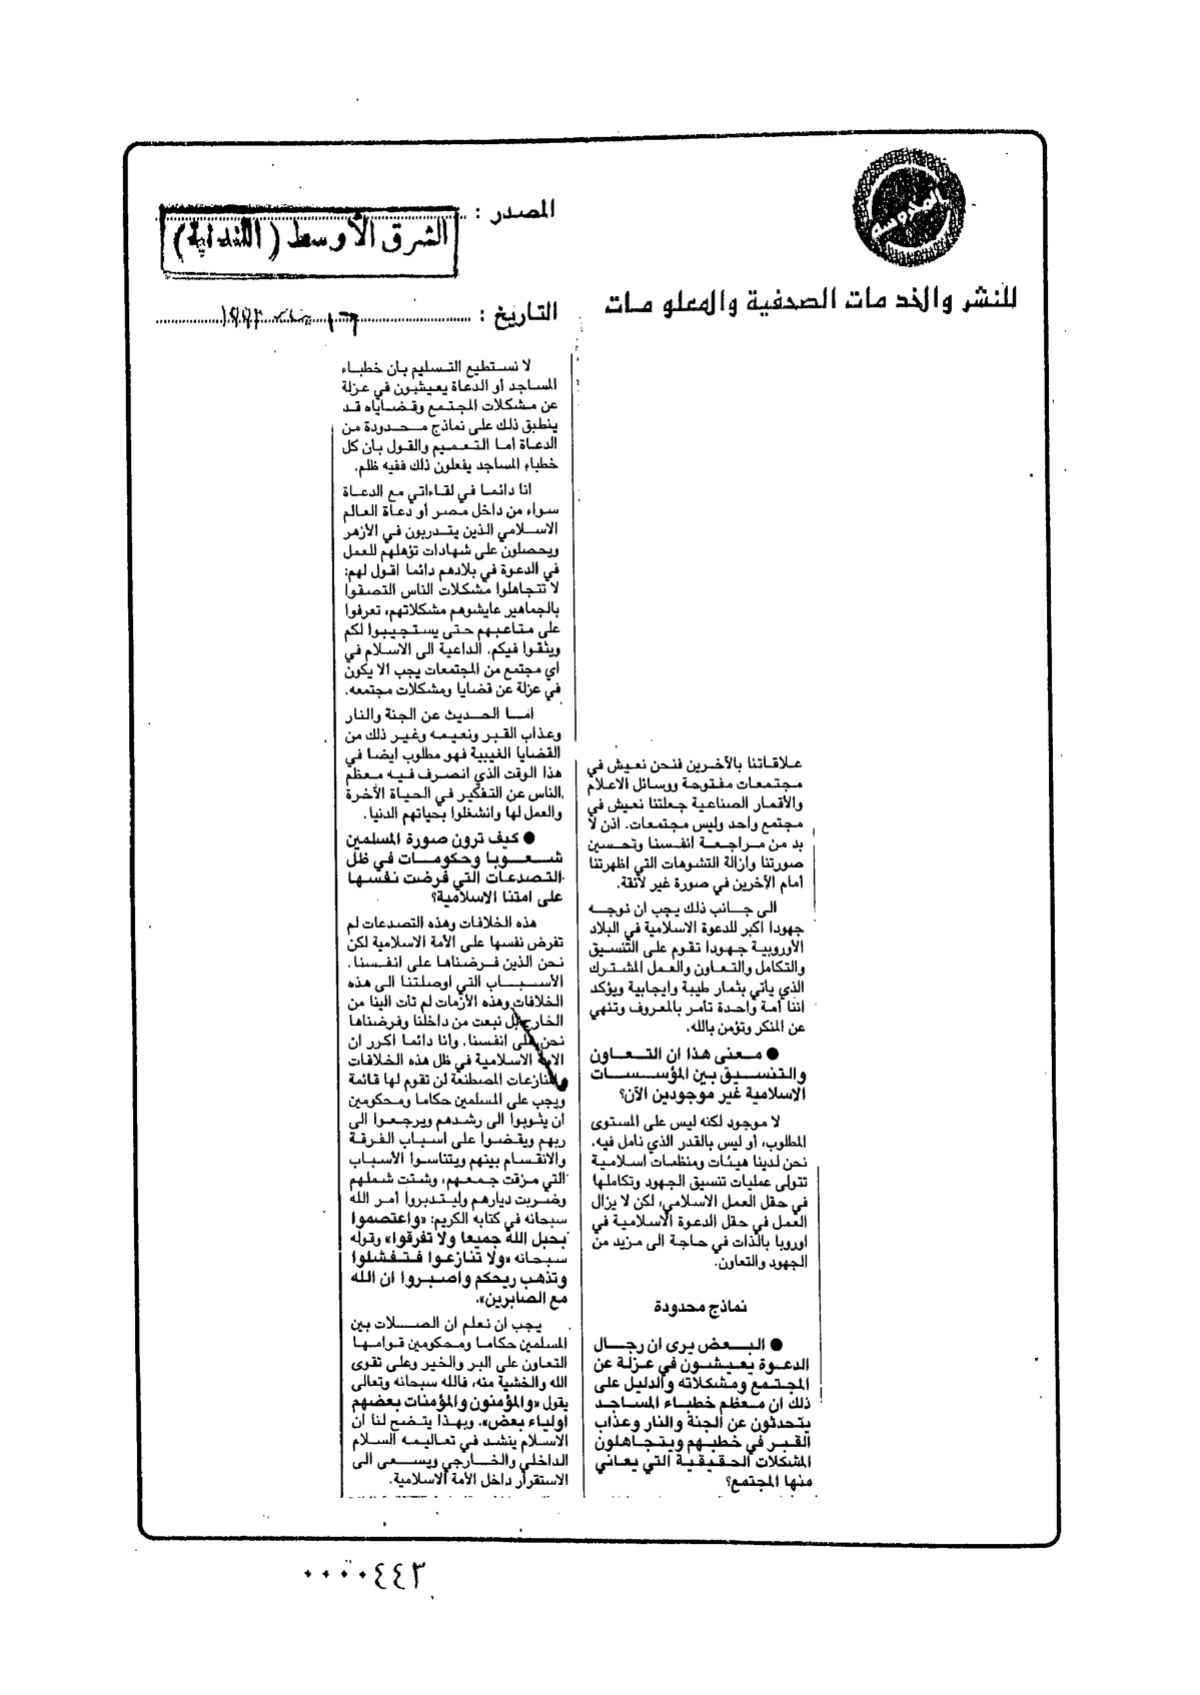 المدوسة
للنشر والخد مات الصحفية والمعلو مات
المصدر :
الشرق الأوسط (اللندنية)
التاريخ : ١٦ يناير ١٩٩٣
علاقاتنا بالآخرين فنحن نعيش في
مجتمعات مفتوحة ووسائل الاعلام
والأقمار الصناعية جعلتنا نعيش في
مجتمع واحد وليس مجتمعات. اذن لا
بد من مراجعة انفسنا وتحسين
صورتنا وازالة التشوهات التي اظهرتنا
أمام الآخرين في صورة غير لائقة.
الى جانب ذلك يجب ان نوجه
جهودا اكبر للدعوة الاسلامية في البلاد
الأوروبية جهودا تقوم على التنسيق
والتكامل والتعاون والعمل المشترك
الذي يأتي بثمار طيبة وإيجابية ويؤكد
اننا أمة واحدة تأمر بالمعروف وتنهي
عن المنكر وتؤمن بالله.
● معنى هذا ان التعاون
والتنسيق بين المؤسسات
الاسلامية غير موجودين الآن؟
لا موجود لكنه ليس على المستوى
المطلوب، أو ليس بالقدر الذي نأمل فيه.
نحن لدينا هيئات ومنظمات اسلامية
تتولى عمليات تنسيق الجهود وتكاملها
في حقل العمل الاسلامي، لكن لا يزال
العمل في حقل الدعوة الاسلامية في
اوروبا بالذات في حاجة الى مزيد من
الجهود والتعاون.
نماذج محدودة
● البعض يرى ان رجال
الدعوة يعيشون في عزلة عن
المجتمع ومشكلاته والدليل على
ذلك ان معظم خطباء المساجد
يتحدثون عن الجنة والنار وعذاب
القبر في خطبهم ويتجاهلون
المشكلات الحقيقية التي يعاني
منها المجتمع؟
لا نستطيع التسليم بان خطباء
المساجد أو الدعاة يعيشون في عزلة
عن مشكلات المجتمع وقضاياه قد
ينطبق ذلك على نماذج محدودة من
الدعاة أما التعميم والقول بأن كل
خطباء المساجد يفعلون ذلك ففيه ظلم.
انا دائما في لقاءاتي مع الدعاة
سواء من داخل مصر أو دعاة العالم
الاسلامي الذين يتدربون في الأزهر
ويحصلون على شهادات تؤهلهم للعمل
في الدعوة في بلادهم دائما اقول لهم:
لا تتجاهلوا مشكلات الناس التصقوا
بالجماهير عايشوهم مشكلاتهم، تعرفوا
على متاعبهم حتى يستجيبوا لكم
ويثقوا فيكم. الداعية الى الاسلام في
اي مجتمع من المجتمعات يجب الا يكون
في عزلة عن قضايا ومشكلات مجتمعه.
اما الحديث عن الجنة والنار
وعذاب القبر ونعيمه وغير ذلك من
القضايا الغيبية فهو مطلوب ايضا في
هذا الوقت الذي انصرف فيه معظم
الناس عن التفكير في الحياة الآخرة
والعمل لها وانشغلوا بحياتهم الدنيا.
● كيف ترون صورة المسلمين
شعوبا وحكومات في ظل
التصدعات التي فرضت نفسها
على امتنا الاسلامية؟
هذه الخلافات وهذه التصدعات لم
تفرض نفسها على الأمة الاسلامية لكن
نحن الذين فرضناها على انفسنا.
الأسباب التي اوصلتنا الى هذه
الخلافات وهذه الأزمات لم تأت الينا من
الخارج بل نبعت من داخلنا وفرضناها
نحن على انفسنا. وانا دائما اكرر ان
الامة الاسلامية في ظل هذه الخلافات
والمنازعات المصطنعة لن تقوم لها قائمة
ويجب على المسلمين حكاما ومحكومين
ان يثوبوا الى رشدهم ويرجعوا الى
ربهم ويقضوا على اسباب الفرقة
والانقسام بينهم ويتناسوا الأسباب
التي مزقت جمعهم، وشتت شملهم
وضربت ديارهم وليتدبروا أمر الله
سبحانه في كتابه الكريم: «واعتصموا
بحبل الله جميعا ولا تفرقوا» وقوله
سبحانه «ولا تنازعوا فتفشلوا
وتذهب ريحكم واصبروا ان الله
مع الصابرين».
يجب ان نعلم ان الصلات بين
المسلمين حكاما ومحكومين قوامها
التعاون على البر والخير وعلى تقوى
الله والخشية منه، فالله سبحانه وتعالى
يقول «والمؤمنون والمؤمنات بعضهم
اولياء بعض». وبهذا يتضح لنا ان
الاسلام ينشد في تعاليمه السلام
الداخلي والخارجي ويسعى الى
الاستقرار داخل الأمة الاسلامية.
٠٠٠٠٤٤٣